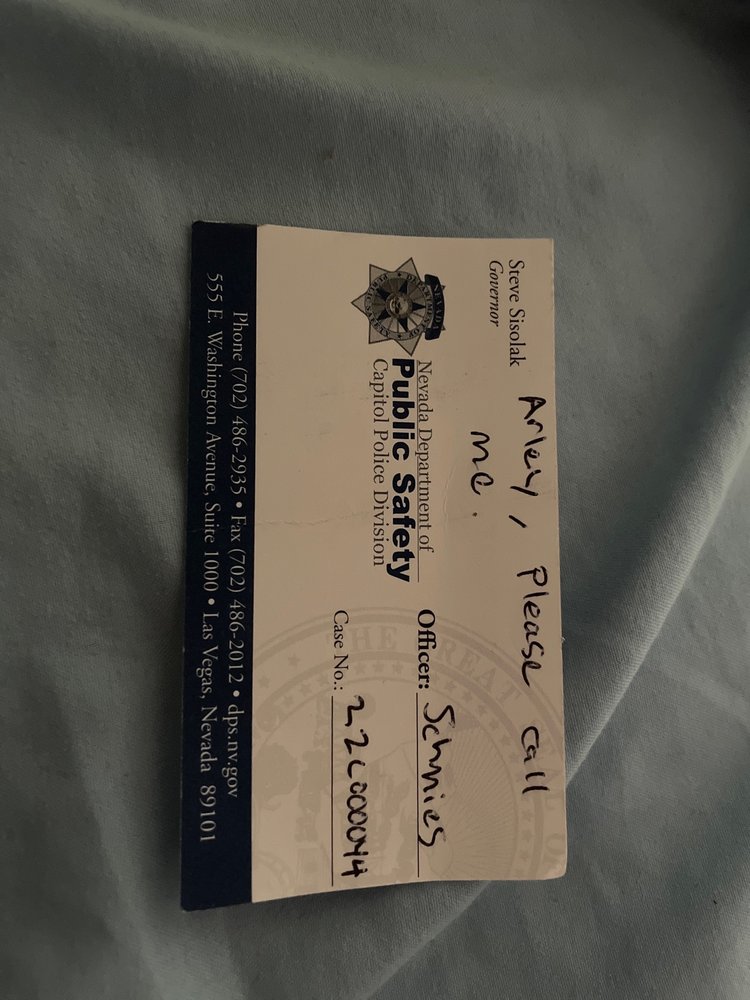 Steve Sisolak
Governor
Arley, Please call
me.
Nevada Department of
Public Safety
Capitol Police Division
Officer: Schnies
Case No.: 22C000044
Phone (702) 486-2935 • Fax (702) 486-2012 • dps.nv.gov
555 E. Washington Avenue, Suite 1000 • Las Vegas, Nevada 89101
NEVADA
THE GREAT
OF